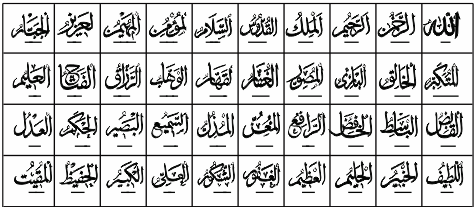 الله الرحمن الرحيم الملك القدوس السلام المؤمن المهيمن العزيز الجبار
المتكبر الخالق البارئ المصور الغفار القهار الوهاب الرزاق الفتاح العليم
القابض الباسط الخافض الرافع المعز المذل السميع البصير الحكم العدل
اللطيف الخبير الحليم العظيم الغفور الشكور العلي الكبير الحفيظ المقيت